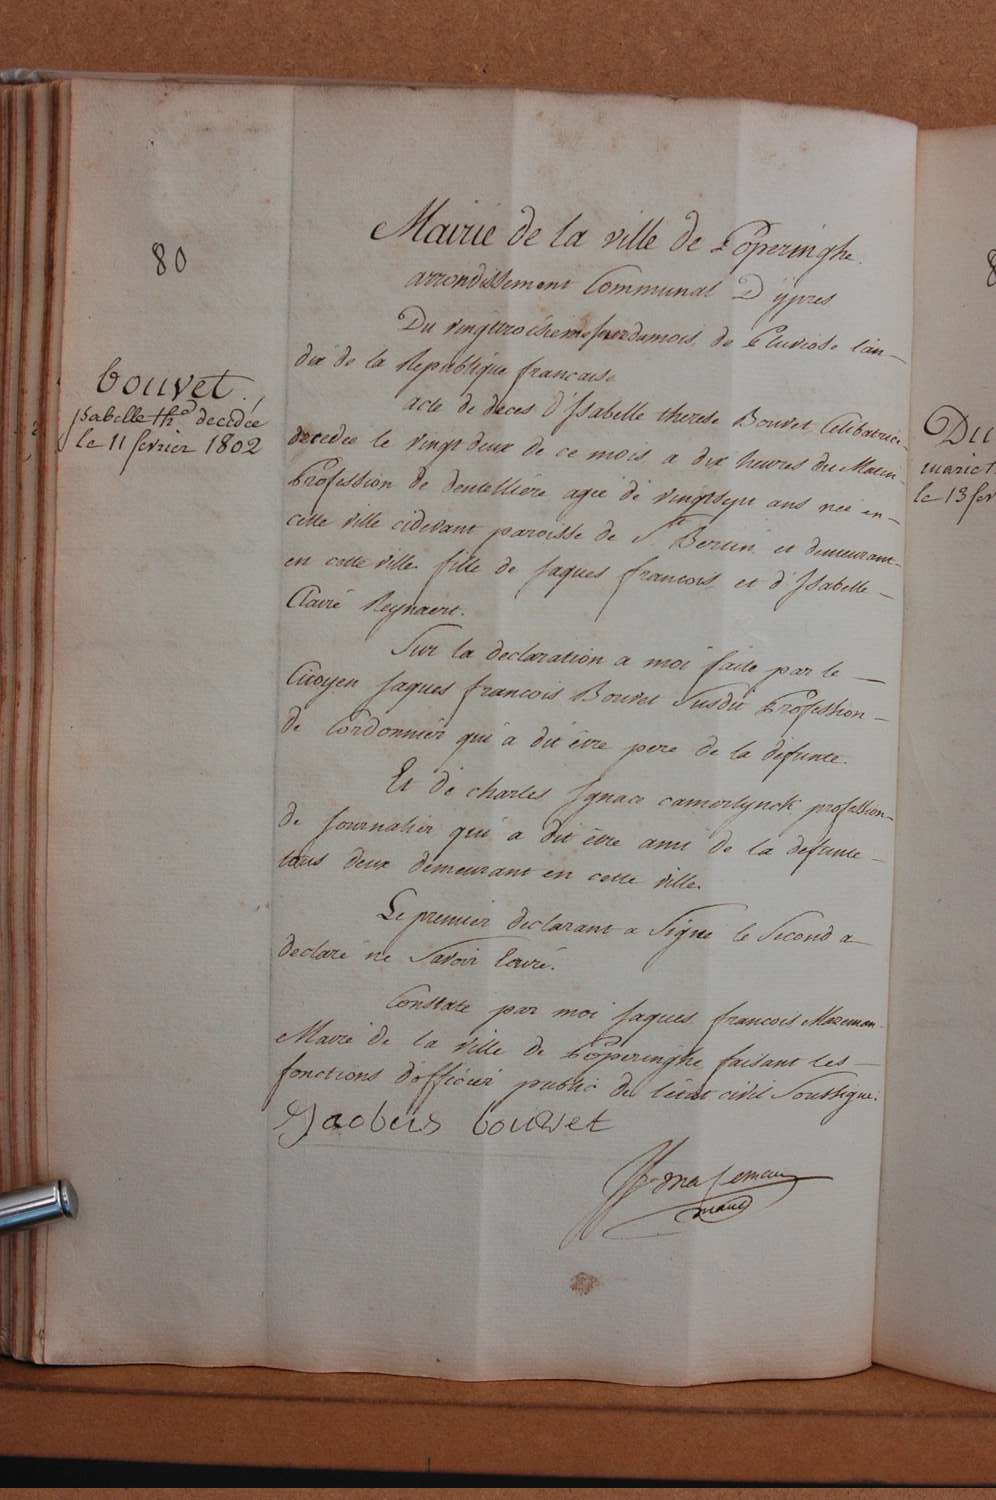 80
bouvet
isabelle th.e decedée
le 11 fevrier 1802
Mairie de la ville de Poperinghe.
arrondissement Communal D'ypres
Du vingttroisieme jour du mois de Pluviose l'an—
dix de la Republique francaise
acte de deces d'Isabelle therese Bouvet Celibatrice
decedée le vingt deux de ce mois a dix heures du Matin
Profession de dentelliere agée de vingtsept ans née en—
cette ville cidevant paroisse de St Bertin et demeurant
en cette ville fille de Jaques francois et d'Isabelle—
Claire Reynaert.
Sur la declaration a moi faite par le—
Citoyen Jaques francois Bouvet Susdit Profession—
de Cordonnier qui a dit être pere de la defunte.
Et de charles Ignace camerlynck profession—
de Journalier qui a dit être ami de la defunte—
tous deux demeurant en cette ville.
Le premier declarant a Signé le Second a—
declaré ne Savoir Ecrire.
Constaté par moi Jaques francois Mazeman
Maire de la ville de Poperinghe faisant les—
fonctions d'officier public de l'etat civil Soussigné.
Jacobus bouvet
maire
Du
marie t
le 13 fev